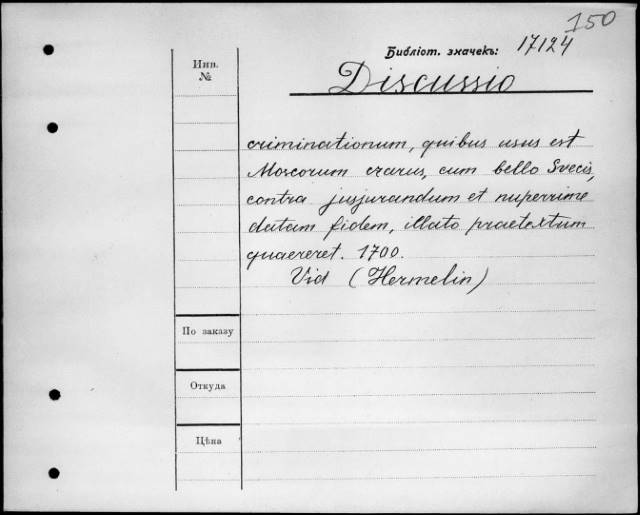 150
Библіот. значекъ: 17124
Инв.
№
Discussio
criminationum, quibus usus est
Moscorum czarus, cum bello Svecis,
contra jusjurandum et nuperrime
datam fidem, illato praetextum
quaereret. 1700.
Vid (Hermelin)
По заказу
Откуда
Цѣна